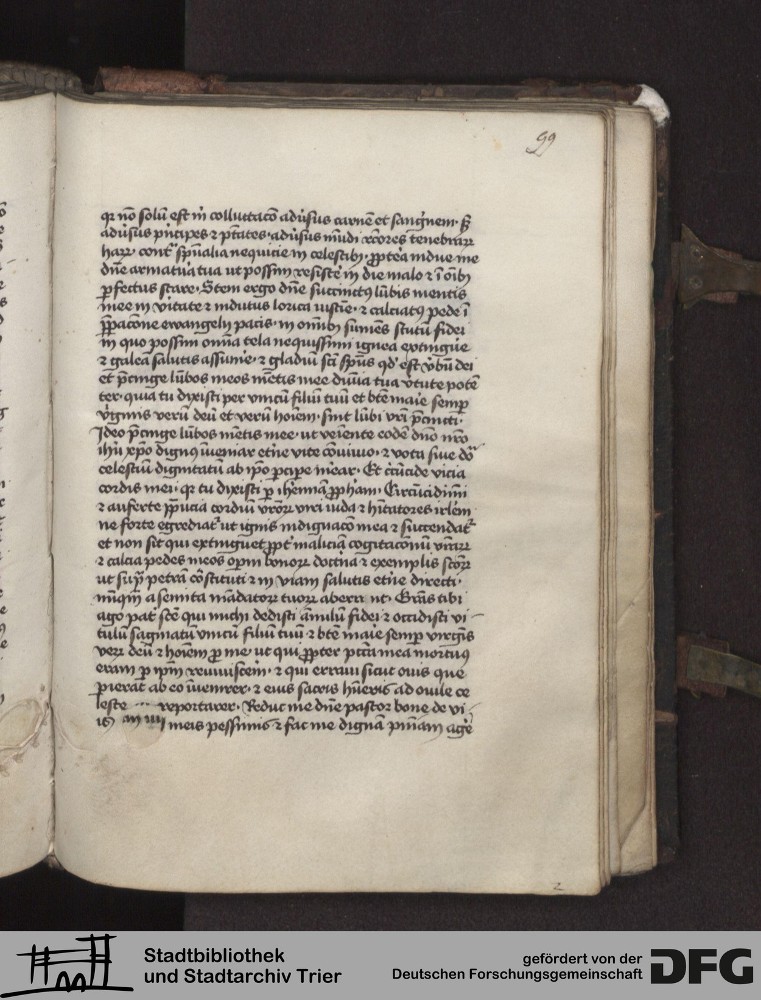 99
qr nō solū est m̄ colluctacō adūsus carnē et sanguinem · s̄
adūsus pͥncipes ⁊ ptātes · adūsus mūdi rc̄ores tenebrarꝝ
harꝝ · contͣ spūalia nequicie in celestibꝫ · ꝓpt̄ea indue me
dn̄e armatura tua ut possim resistē in die malo ⁊ ī oībꝫ
ꝑfectus stare · Stem ergo dn̄e succinctꝰ lūbis mentis
mee in v̄itate ⁊ indutus lorica iusticie · ⁊ calciatꝰ pede ī
p̄paracōne ewangelij pacis · in omībꝫ sumēs scutū fidei
in quo possim om̄ia tela nequissimi ignea extingūe
⁊ galeā salutis assumē · ⁊ gladiū sc̄i spūs qd' est v̄bū dei
et p̄cinge lūbos meos mētis mee diuīa tua v̄tute potē
ter · quia tu dixisti per vnicū filiū tuū et bt̄e maīe semꝑ
v̄ginis verū deū et verū hoīem · sint lūbi vrī p̄cincti ·
Ideo p̄cinge lūbos mētis mee · ut veniente eodē dn̄o nr̄o
ihū xp̄o dignꝰ inueniar etn̄e vite cōuiuio · ⁊ vota siue do
celestiū dignitatū ab ip̄o ꝑcipe mear · Et ccūcide vicia
cordis mei · qr tu dixisti ꝑ iheremiā ꝓphām · Circūcidimī
⁊ auferte p̄pucia cordiū vr̄orꝝ viri iuda ⁊ hītatores irlem
ne forte egrediatͬ ut ignis indignacō mea ⁊ succendatͬ
et non sit qui extinguet ꝓptͬ maliciā cogitacōnū vrarꝝ
⁊ calcia pedes meos oꝑm bonorꝝ doctͥna ⁊ exemplis sc̄orꝝ
ut suꝑ petrā cōstituti ⁊ in viam salutis etn̄e directi ·
nūqm̄ a semita mādatorꝝ tuorꝝ aberrēnt · Grās tibi
ago patͬ sc̄e qui michi dedisti ānulū fidei ⁊ occidisti vi
tulū saginatū vnicū filiū tuū ⁊ bt̄e maīe semꝑ virgīs
verꝝ deū ⁊ hoīem ꝑ me · ut qui ꝓpter pcc̄a mea mortuꝰ
eram ꝑ ip̄m reuiuiscerē · ⁊ qui erraui sicut ouis que
ꝑierat ab eo inuenirer · ⁊ eius sacris hūeris ad ouile ce
leste reportarer · Reduc me dn̄e pastor bone de vi
is meis pessimis ⁊ fac me dignā pnīam agē
2
Stadtbibliothek
und Stadtarchiv Trier
gefördert von der
Deutschen Forschungsgemeinschaft
DFG